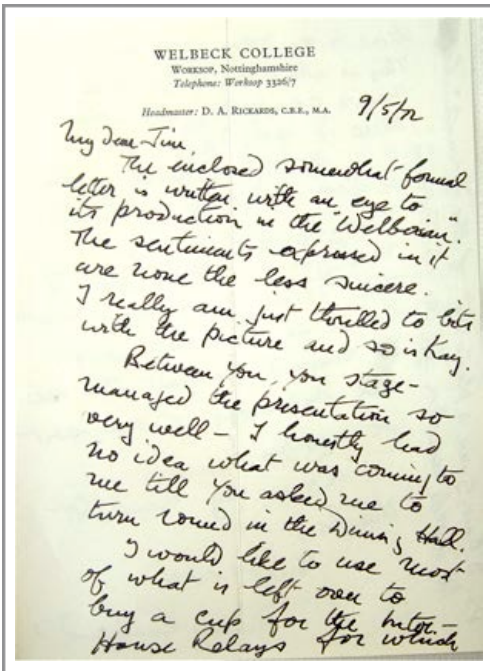 WELBECK COLLEGE
WORKSOP, Nottinghamshire
Telephone: Worksop 3326/7
Headmaster: D. A. RICKARDS, C.B.E., M.A.
9/5/72
My dear Jim,
The enclosed somewhat formal
letter is written with an eye to
its production in the "Welbexian".
The sentiments expressed in it
are none the less sincere.
I really am just thrilled to bits
with the picture and so is Kay.
Between you, you stage-
managed the presentation so
very well - I honestly had
no idea what was coming to
me till you asked me to
turn round in the Dining Hall.
I would like to use most
of what is left over to
buy a cup for the Inter-
House Relays for which